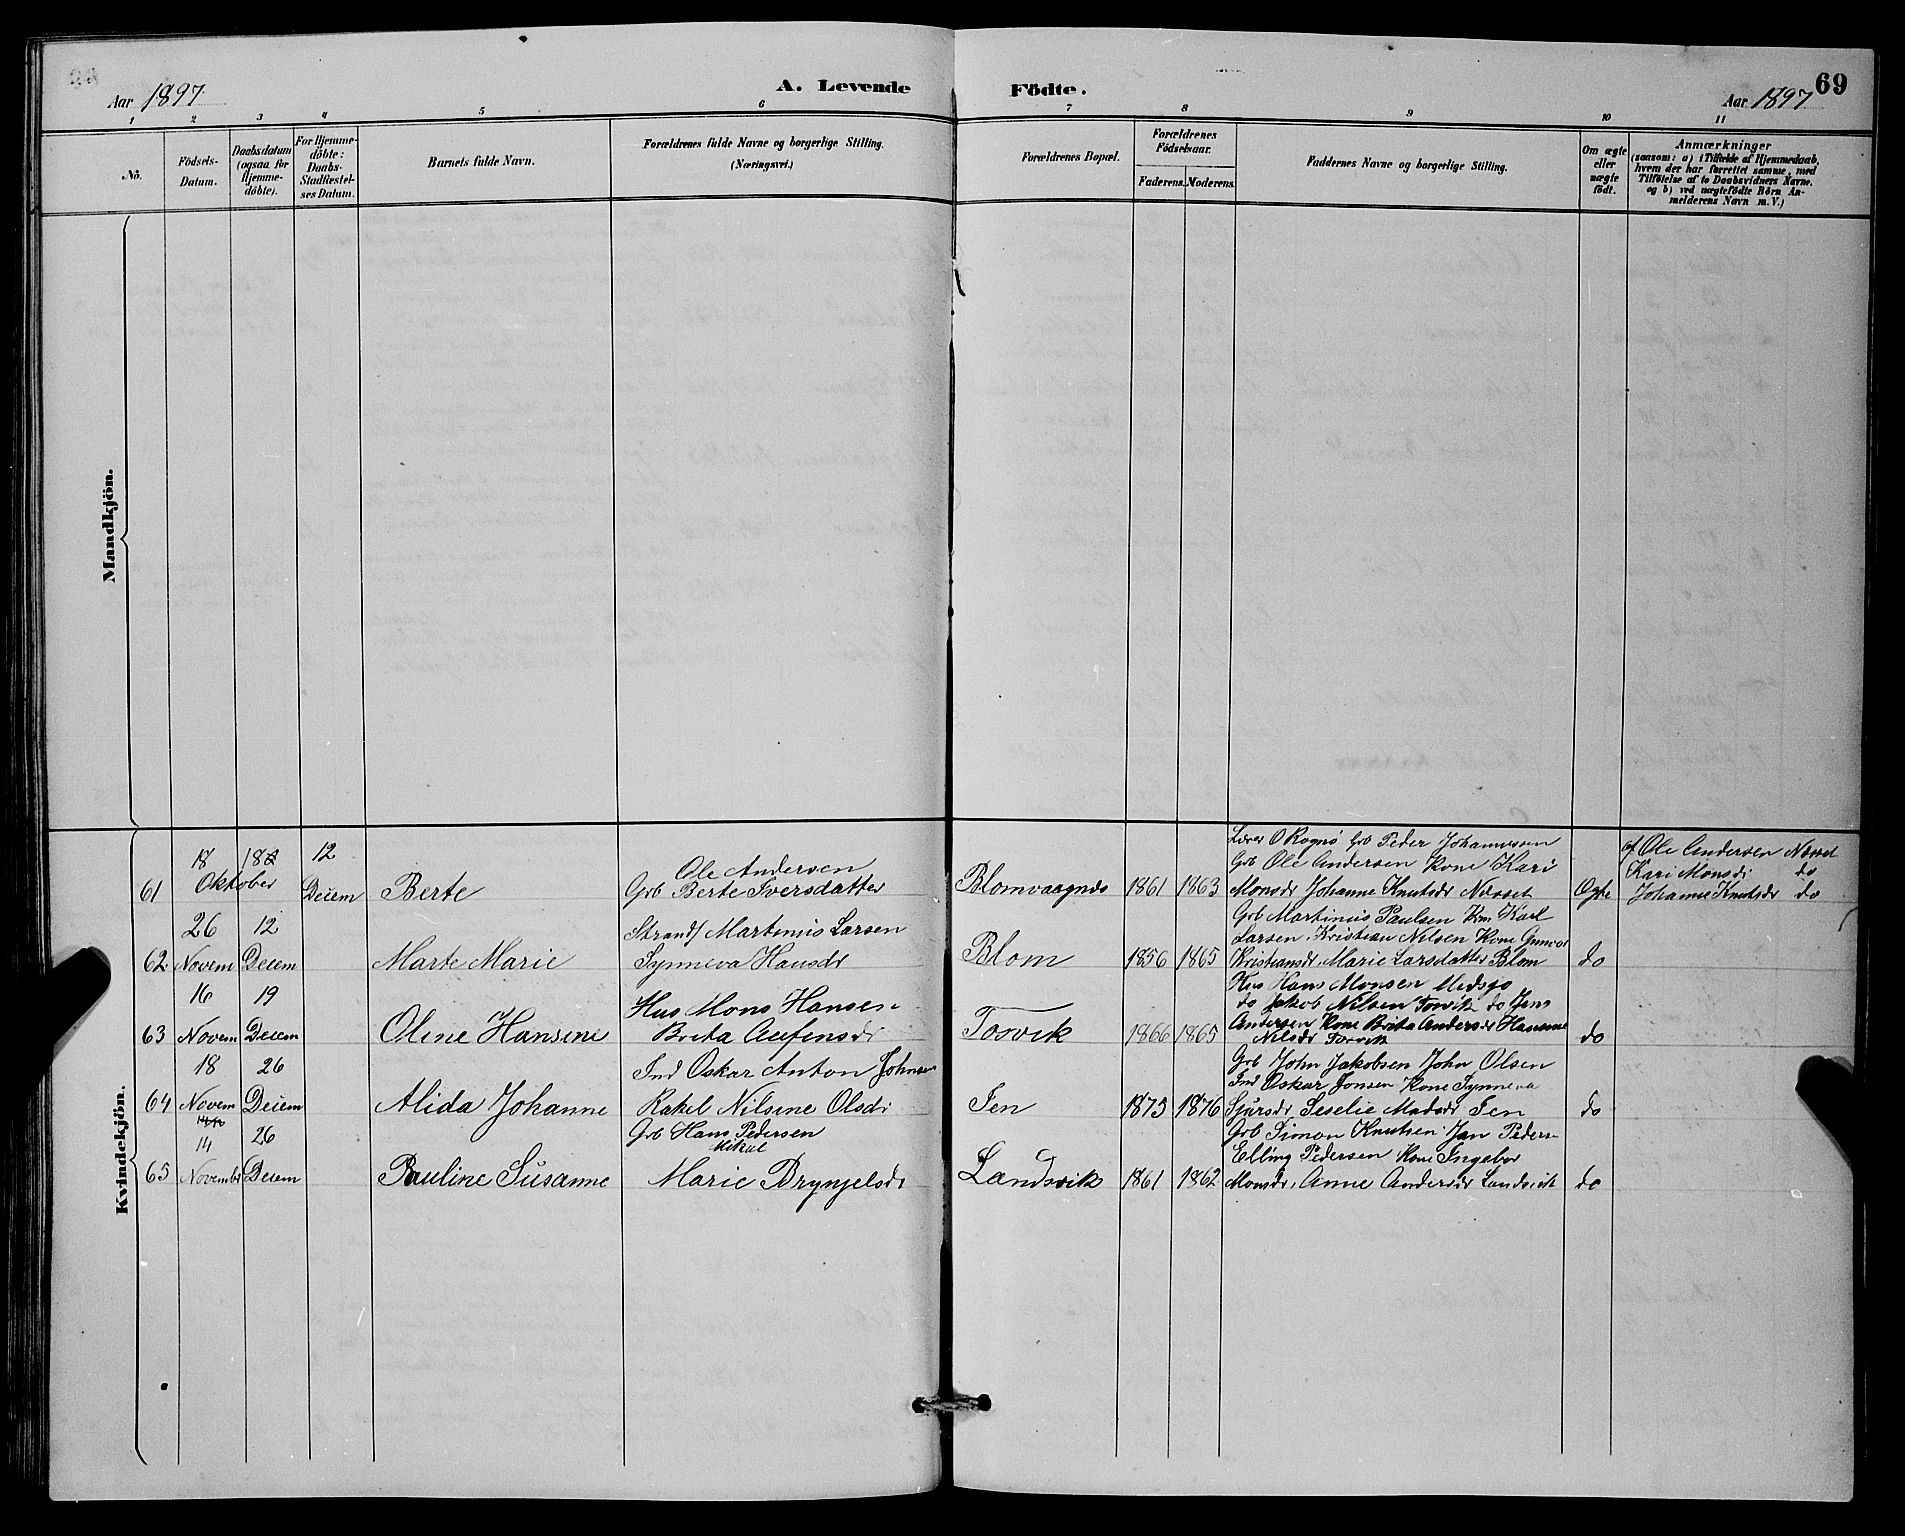 Aar 1897
A. Levende Födte.
69
Aar 1897
1 2 3 4 5 6 7 8 9 10 11
No.
Födsels-Datum.
Daabsdatum (ogsaa for Hjemme-döbte).
For Hjemme-döbte: Daabs-Stadfæstel-ses Datum.
Barnets fulde Navn.
Forældrenes fulde Navne og borgerlige Stilling. (Næringsvei.)
Forældrenes Bopæl.
Forældrenes Födselsaar.
Faderens. Moderens.
Faddernes Navne og borgerlige Stilling.
Om ægte eller uægte födt.
Anmærkninger
(saasom: a) i Tilfælde af Hjemmedaab,
hvem der har forrettet samme, med
Tilföielse af to Daabsvidners Navne,
og b) ved uægtefödte Börn An-
melderens Navn m. V.)
Mandkjön.
Kvindekjön.
61
18 Oktober
12 Decem
Berte
Ole Andersen
Grb Berte Iversdatter
Blomvaagnes
1861 1863
Lærer O Rognö Grb Peder Johannessen
Grb Ole Andersen Kone Kari
Monsdr Johanne Knutsdr Nesset
Ægte
af Ole Andersen Nesset
Kari Monsdr do
Johanne Knutsdr do
62
26 Novem
12 Decem
Marte Marie
Strands Martinus Larsen
Synneva Hansdr
Blom
1856 1865
Grb Martinus Paulsen Km Karl
Larsen, Kristian Nilsen Kone Gunvor
Kristiansdr, Marie Larsdatter Blom
do
63
16 Novem
19 Decem
Oline Hansine
Hus Mons Hansen
Brita
Torsvik
1866 1865
Hus Hans Monsen
do Jakob Nilsen Torsvik do Jens
Andersen Kone Brita Andersdr Hansine
Nilsdr Torsvik
do
64
18 Novem
26 Decem
Alida Johanne
Ind Oskar Anton Johnsen
Rakel Nilsine Olsdr
Ien
1873 1876
Grb John Jakobsen John Olsen
Ind Oskar Jonsen Kone Synneva
Sjursdr Seselie Madsdr Ien
do
65
14 November
26 Decem
Pauline Susanne
Grb Hans Pedersen
Mikal
Marie Brynjelsdr
Landsvik
1861 1862
Grb Simon Knutsen Jan Peders
Elling Pedersen Kone Ingebor
Monsdr, Anne Andersdr Landsvik
do